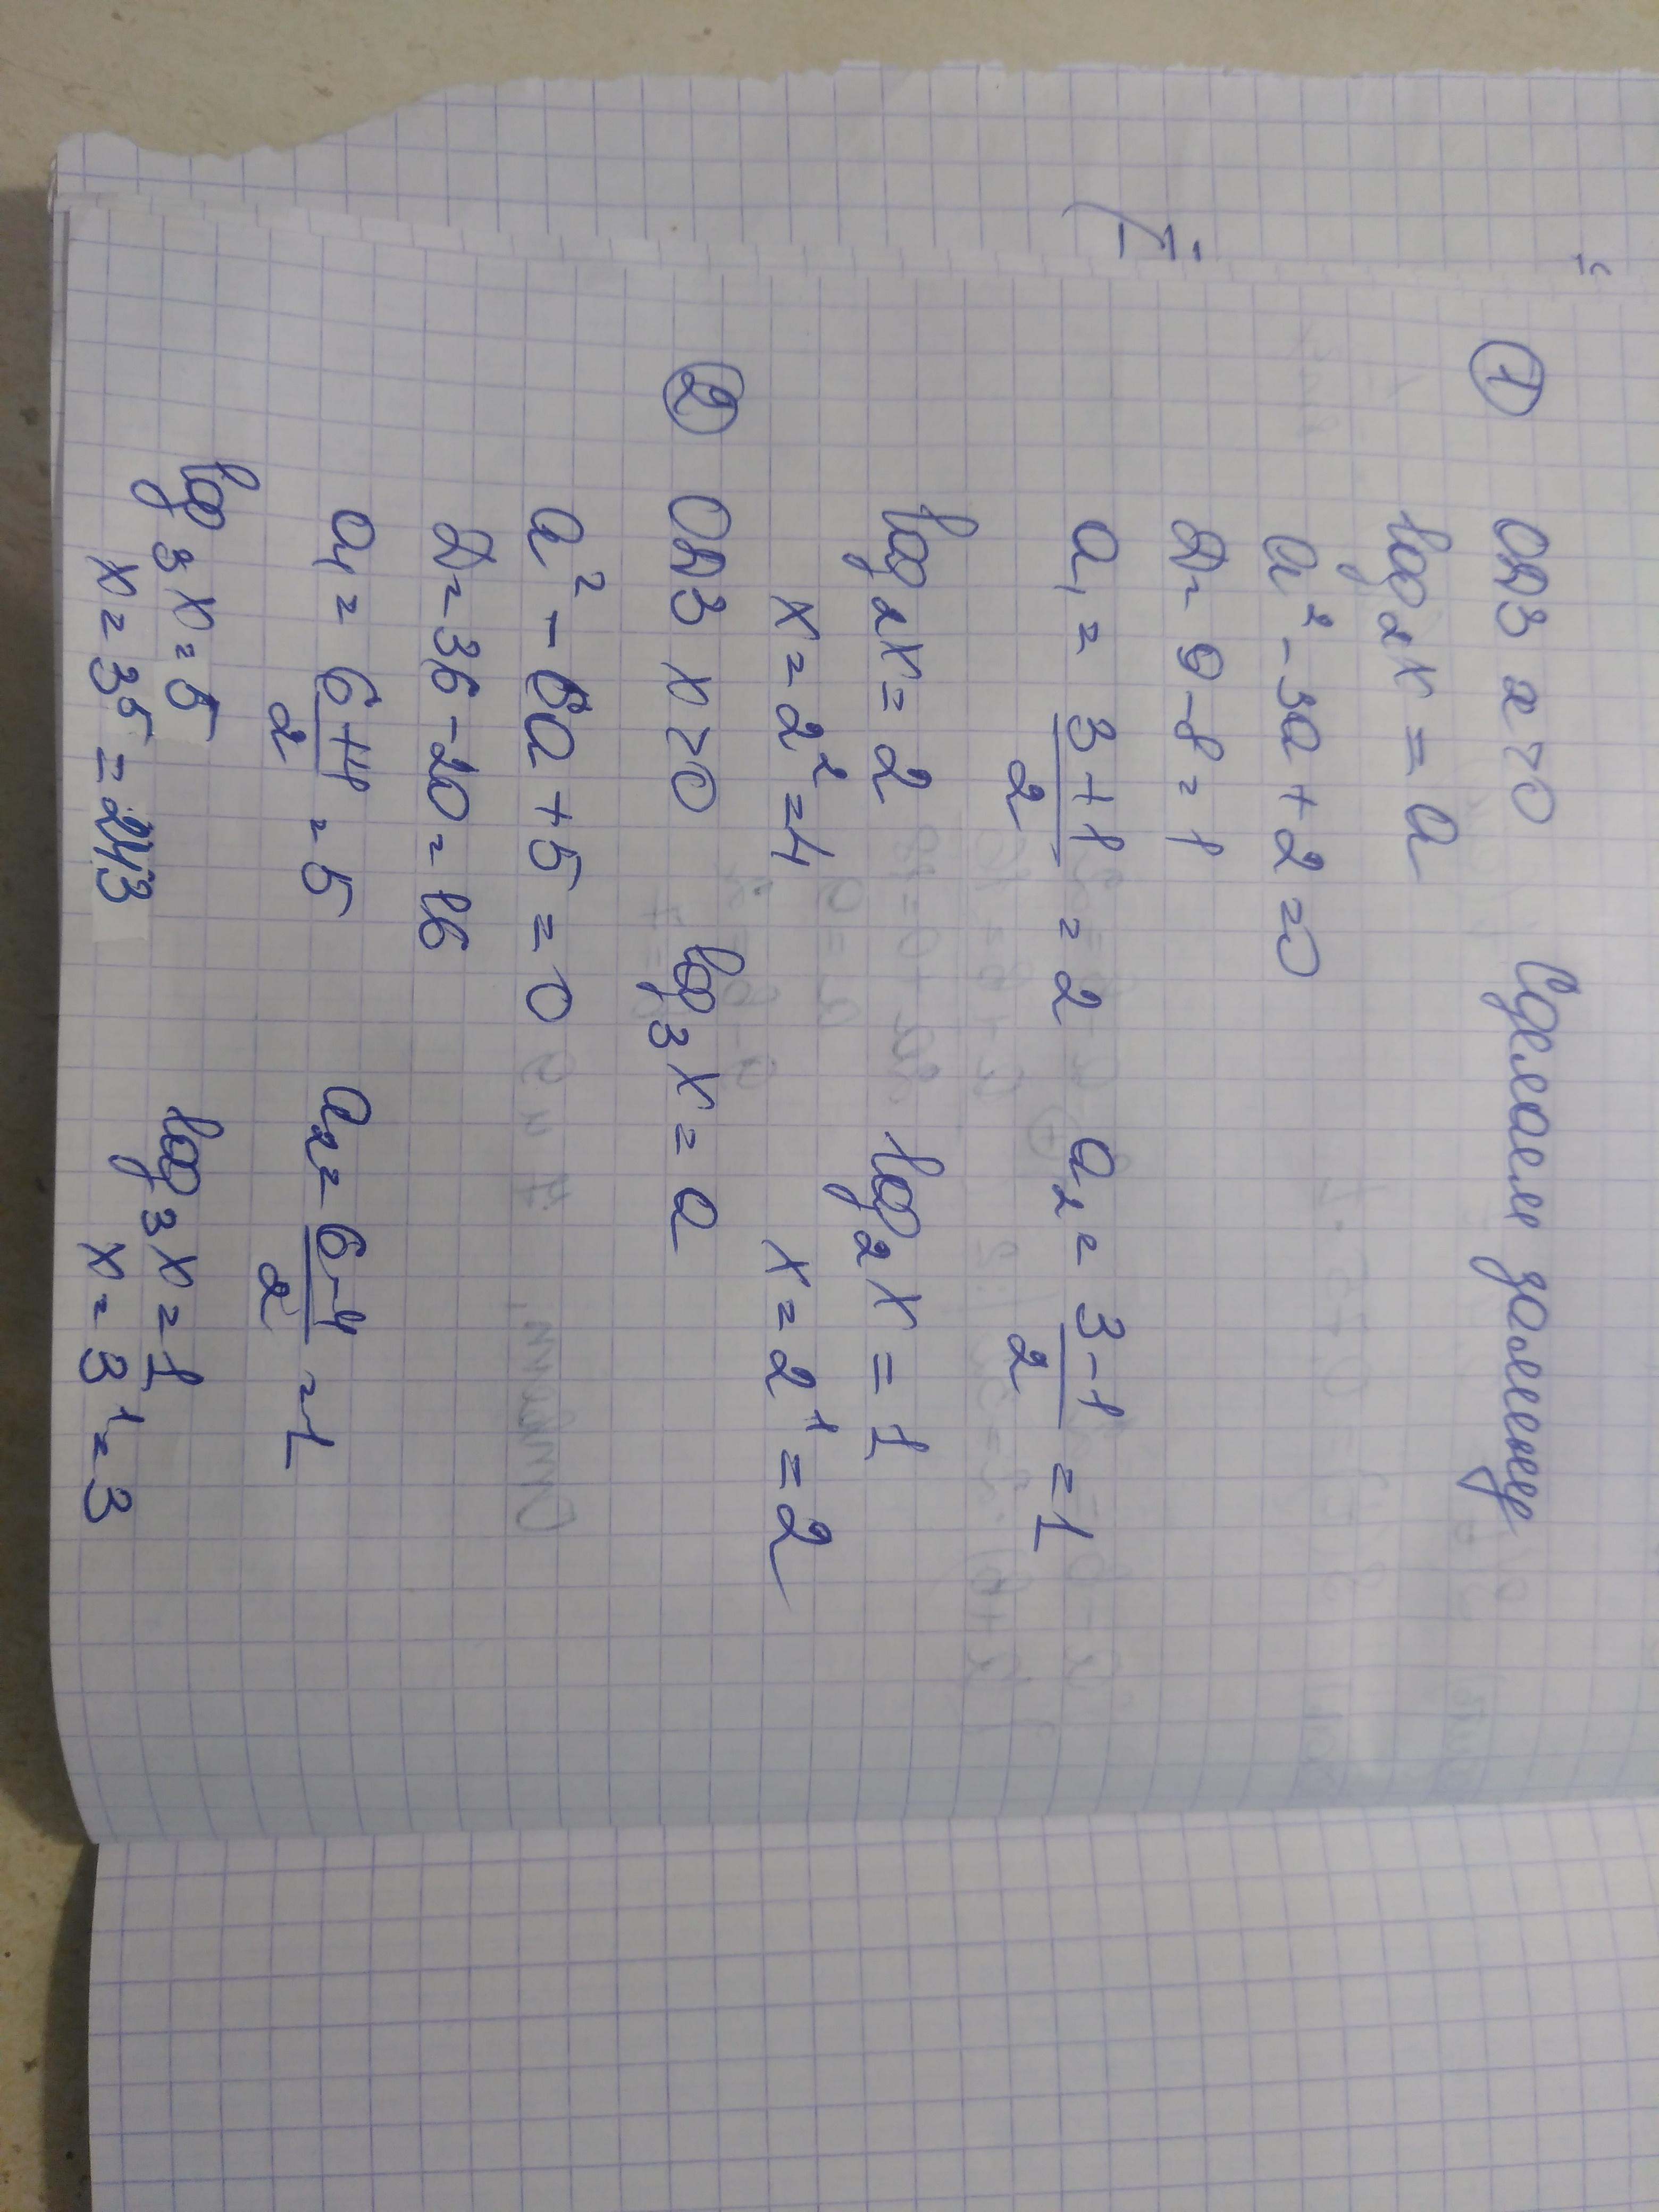 ① ОДЗ x>0 Сделаем замену
log₂x = a
a² - 3a + 2 = 0
D = 9 - 8 = 1
a₁ = (3+1)/2 = 2 a₂ = (3-1)/2 = 1
log₂x = 2 log₂x = 1
x = 2² = 4 x = 2¹ = 2
② ОДЗ x>0 log₃x = a
a² - 6a + 5 = 0
D = 36 - 20 = 16
a₁ = (6+4)/2 = 5 a₂ = (6-4)/2 = 1
log₃x = 5 log₃x = 1
x = 3⁵ = 243 x = 3¹ = 3